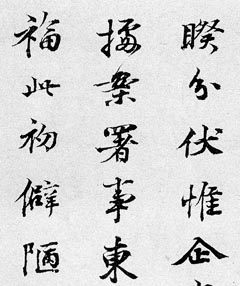 睽分伏惟企
据案署事東
福此初僻陋